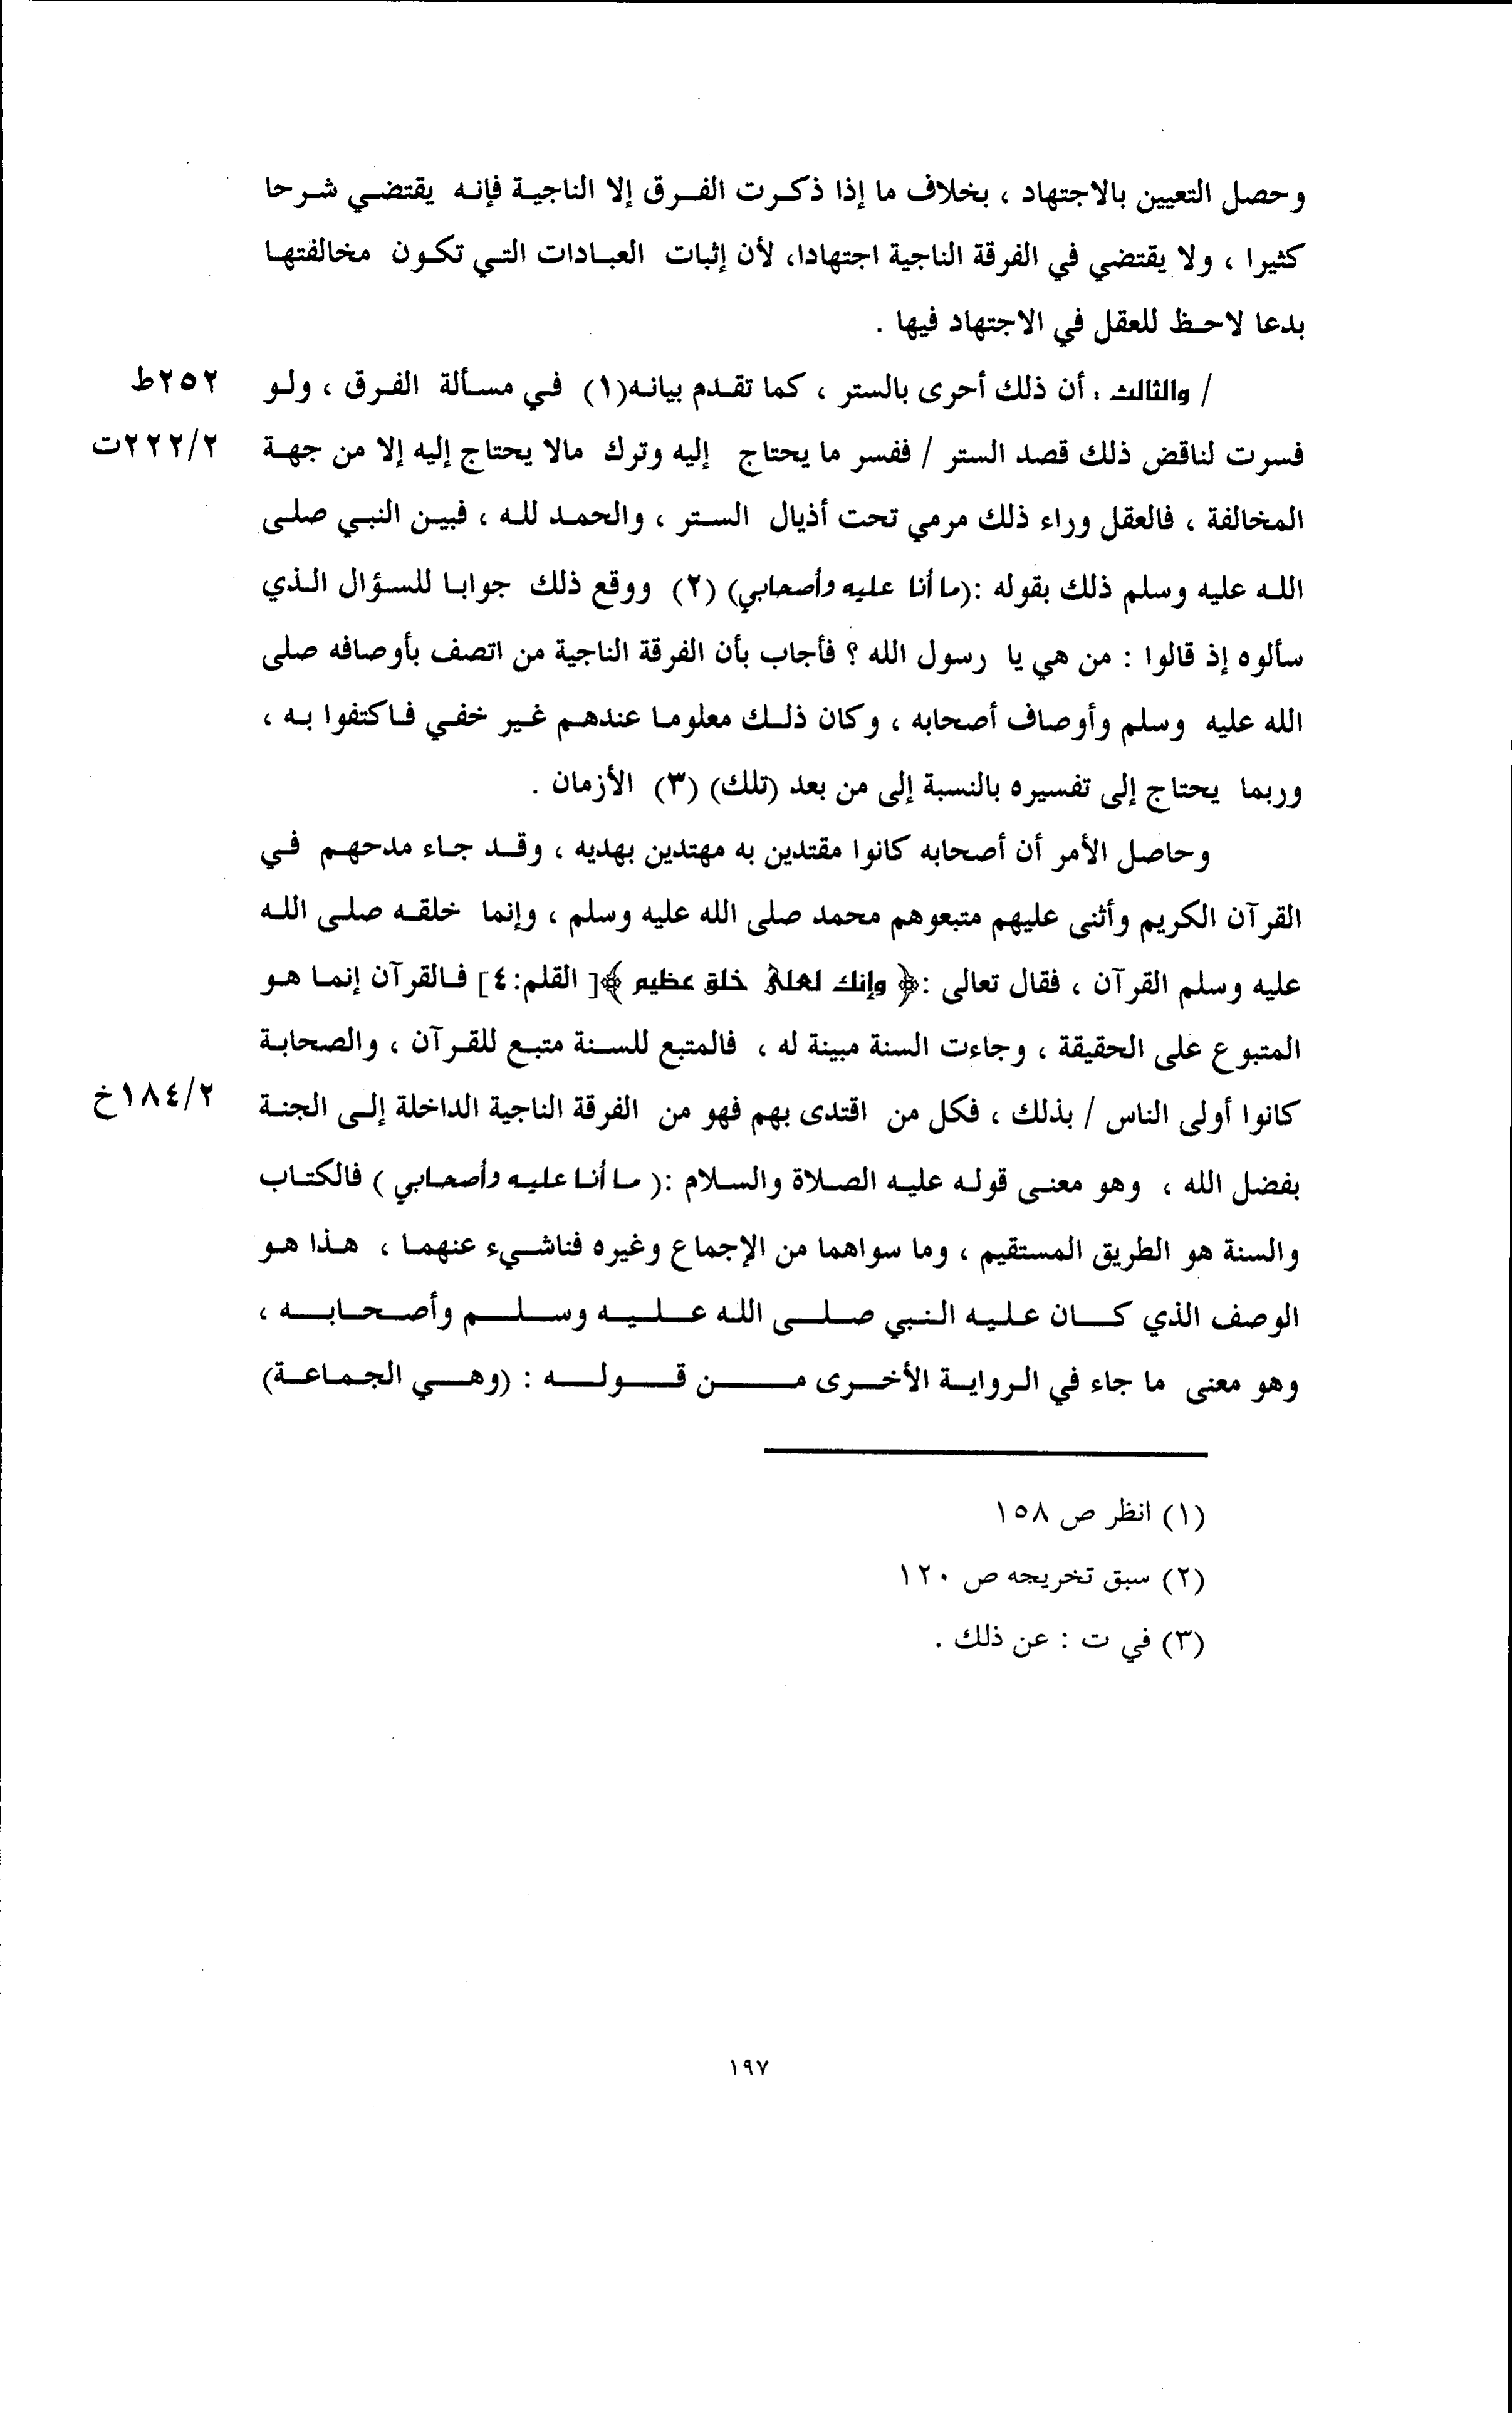 وحصل التعيين بالاجتهاد ، بخلاف ما إذا ذكرت الفرق إلا الناجية فإنه يقتضي شرحا
كثيرا ، ولا يقتضي في الفرقة الناجية اجتهادا، لأن إثبات العبادات التي تكون مخالفتها
بدعا لاحظ للعقل في الاجتهاد فيها .
/ والثالث : أن ذلك أحرى بالستر ، كما تقدم بيانه(١) في مسألة الفرق ، ولو ٢٥٢ط
فسرت لناقض ذلك قصد الستر / ففسر ما يحتاج إليه وترك مالا يحتاج إليه إلا من جهة ٢٢٢/٢ت
المخالفة ، فالعقل وراء ذلك مرمي تحت أذيال الستر ، والحمد لله ، فبين النبي صلى
الله عليه وسلم ذلك بقوله :(ما أنا عليه وأصحابي) (٢) ووقع ذلك جوابا للسؤال الذي
سألوه إذ قالوا : من هي يا رسول الله ؟ فأجاب بأن الفرقة الناجية من اتصف بأوصافه صلى
الله عليه وسلم وأوصاف أصحابه ، وكان ذلك معلوما عندهم غير خفي فاكتفوا به ،
وربما يحتاج إلى تفسيره بالنسبة إلى من بعد (تلك) (٣) الأزمان .
وحاصل الأمر أن أصحابه كانوا مقتدين به مهتدين بهديه ، وقد جاء مدحهم في
القرآن الكريم وأثنى عليهم متبعوهم محمد صلى الله عليه وسلم ، وإنما خلقه صلى الله
عليه وسلم القرآن ، فقال تعالى :﴿ وإنك لعلى خلق عظيم ﴾[ القلم: ٤] فالقرآن إنما هو
المتبوع على الحقيقة ، وجاءت السنة مبينة له ، فالمتبع للسنة متبع للقرآن ، والصحابة
كانوا أولى الناس / بذلك ، فكل من اقتدى بهم فهو من الفرقة الناجية الداخلة إلى الجنة ١٨٤/٢خ
بفضل الله ، وهو معنى قوله عليه الصلاة والسلام :( ما أنا عليه وأصحابي ) فالكتاب
والسنة هو الطريق المستقيم ، وما سواهما من الإجماع وغيره فناشيء عنهما ، هذا هو
الوصف الذي كان عليه النبي صلى الله عليه وسلم وأصحابه ،
وهو معنى ما جاء في الرواية الأخرى من قوله : (وهي الجماعة)
(١) انظر ص ١٥٨
(٢) سبق تخريجه ص ١٢٠
(٣) في ت : عن ذلك .
١٩٧